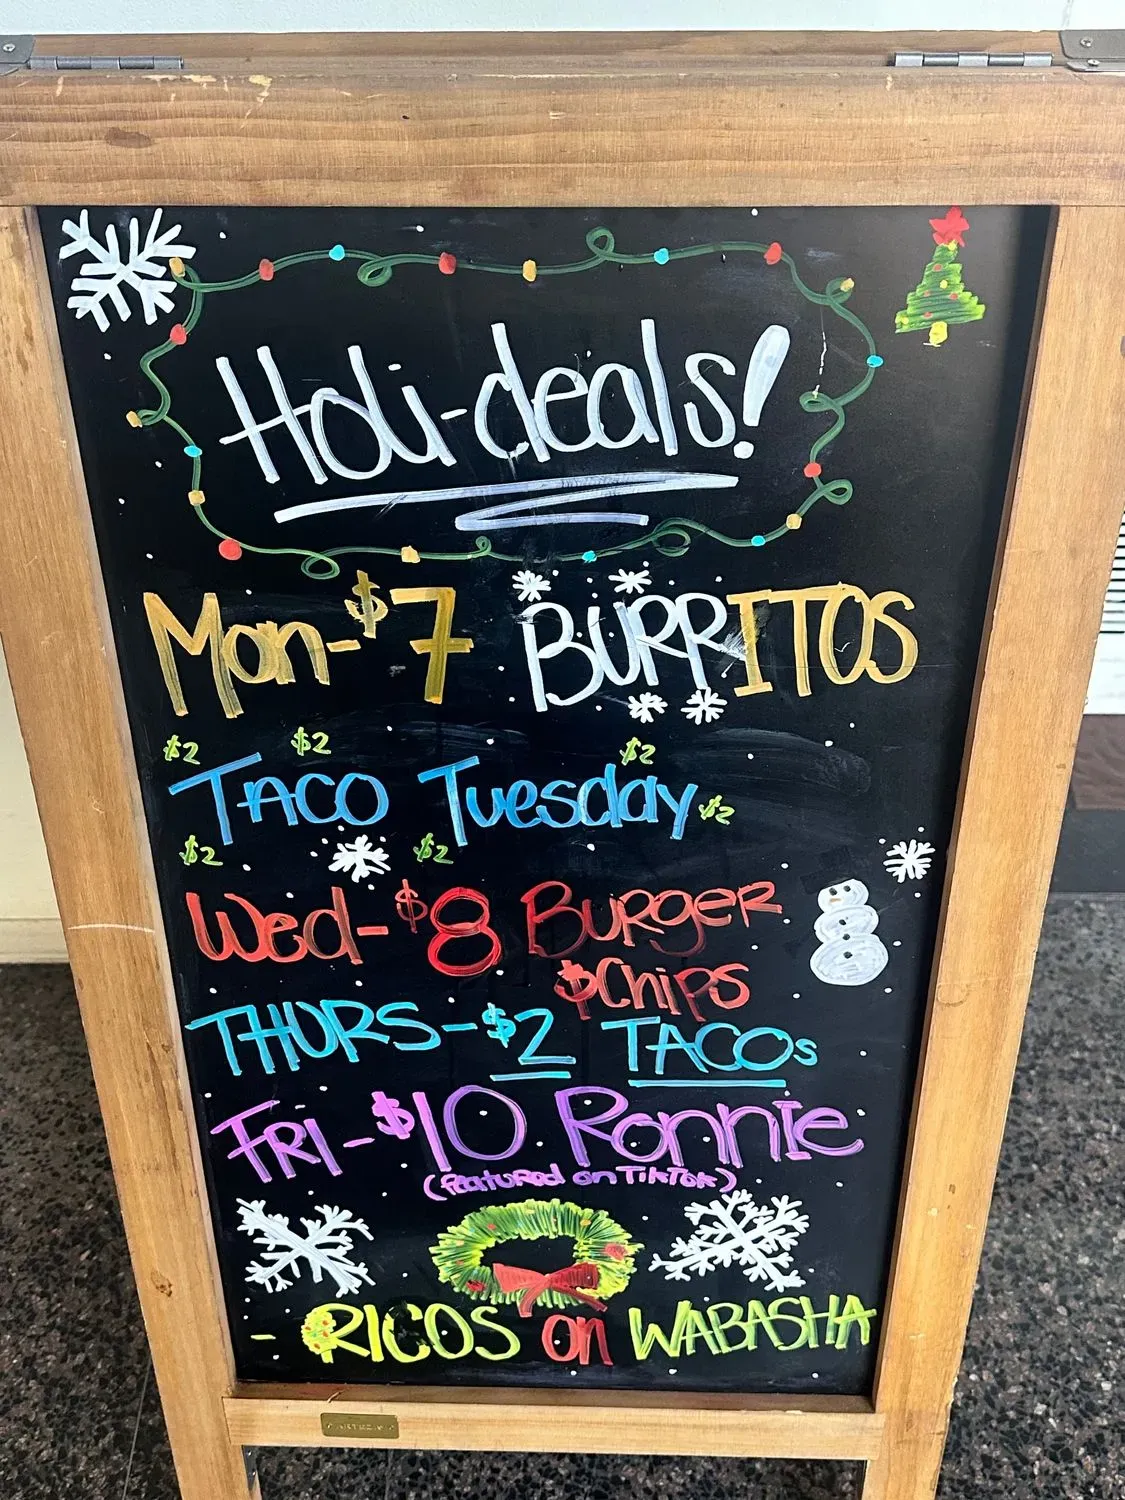 Holi-deals!
Mon-$7 BURRITOS
$2 $2 $2
TACO Tuesday $2
$2 $2
Wed-$8 BURGER
$Chips
THURS-$2 TACOs
FRI-$10 RonnIe
(featuRed on TikTok)
- RICOS on WABASHA